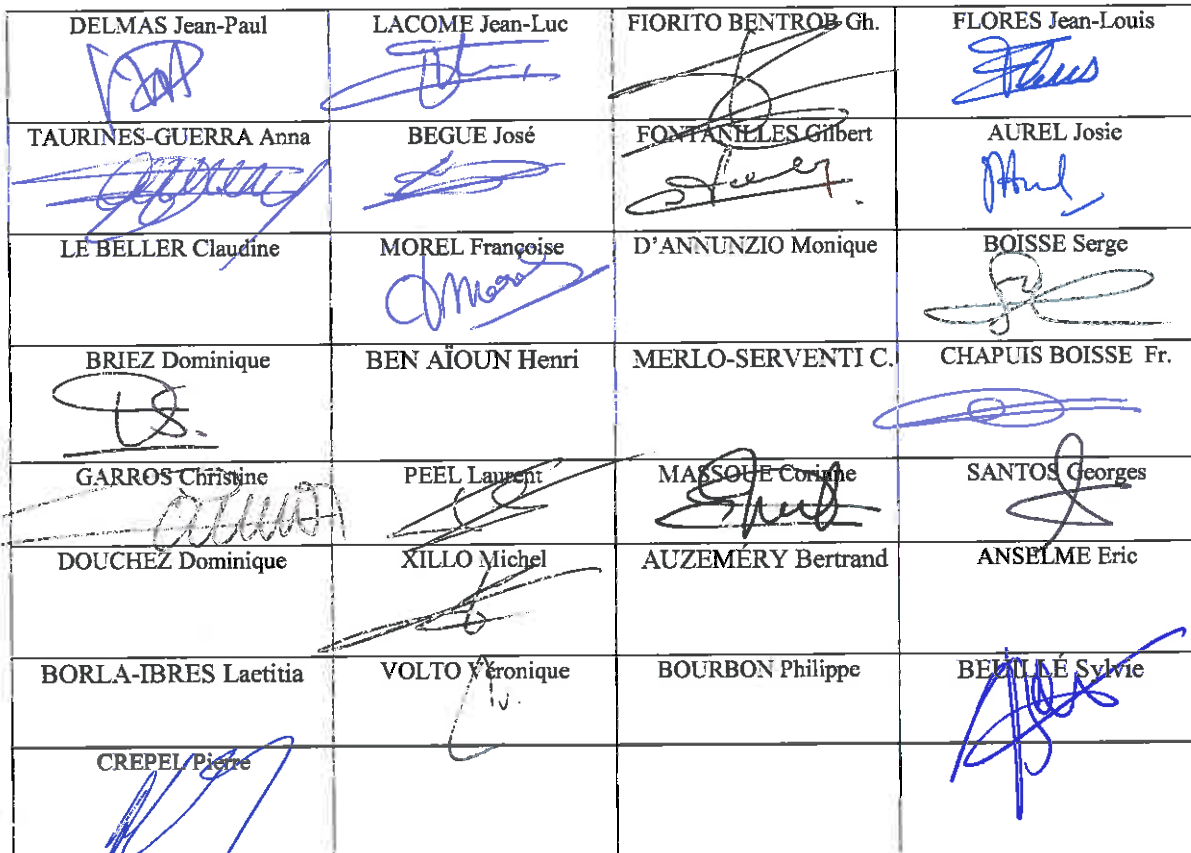 DELMAS Jean-Paul
LACOME Jean-Luc
FIORITO BENTROB Gh.
FLORES Jean-Louis
TAURINES-GUERRA Anna
BEGUE José
FONTANILLES Gilbert
AUREL Josie
LE BELLER Claudine
MOREL Françoise
D'ANNUNZIO Monique
BOISSE Serge
BRIEZ Dominique
BEN AÏOUN Henri
MERLO-SERVENTI C.
CHAPUIS BOISSE Fr.
GARROS Christine
PEEL Laurent
MASSOUE Corinne
SANTOS Georges
DOUCHEZ Dominique
XILLO Michel
AUZEMÉRY Bertrand
ANSELME Eric
BORLA-IBRES Laetitia
VOLTO Véronique
BOURBON Philippe
Sylvie
CREPEL Pierre